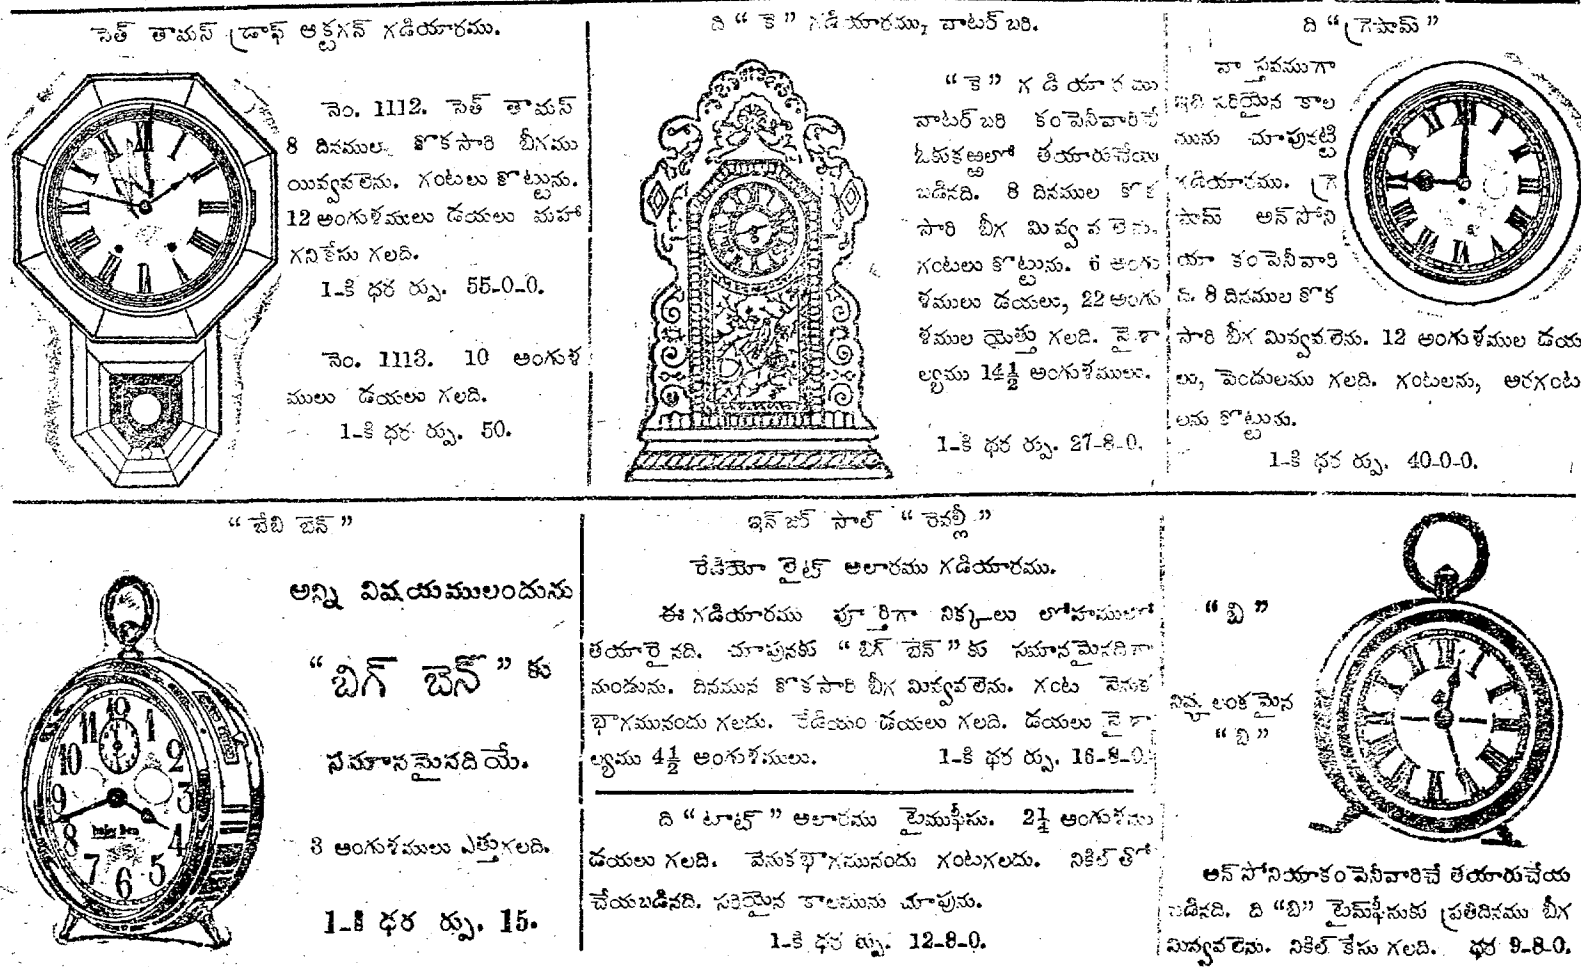 సెత్ తామస్ డ్రాఫ్ ఆక్టగన్ గడియారము.
నెం. 1112. సెత్ తామస్
8 దినముల కొకసారి బీగము
యివ్వవలెను. గంటలు కొట్టును.
12 అంగుళములు డయలు మహా
గనికేసు గలది.
1-కి ధర ర్పు. 55-0-0.
నెం. 1113. 10 అంగుళ
ములు డయలు గలది.
1-కి ధర ర్పు. 50.
ది “ కె ” గడియారము, వాటర్ బరి.
“ కె ” గ డి యా ర ము
వాటర్ బరి కంపెనీవారిచే
ఓకుకఱ్ఱలో తయారుచేయ
బడినది. 8 దినముల కొక
సారి బీగ మివ్వ వ లెను.
గంటలు కొట్టును. 6 అంగు
ళములు డయలు, 22 అంగు
ళముల యెత్తు గలది. వై శా
ల్యము 14½ అంగుళములు.
1-కి ధర ర్పు. 27-8-0.
ది “ గ్రెషామ్ ”
వా స్తవముగా
ఇది సరియైన కాల
మును చూపునట్టి
గడియారము. గ్రె
షామ్ అన్ సోని
యా కంపెనీవారి
ది. 8 దినముల కొక
సారి బీగ మివ్వవలెను. 12 అంగుళముల డయ
లు, పెండులము గలది. గంటలను, అరగంట
లను కొట్టును.
1-కి ధర ర్పు. 40-0-0.
“ బేబి బెన్ ”
అన్ని విషయములందును
“బిగ్ బెన్ ” కు
సమానమైనదియే.
3 అంగుళములు ఎత్తుగలది.
1-కి ధర ర్పు. 15.
ఇన్ జర్ సాల్ “ రెవల్లీ ”
రేడియో లైట్ అలారము గడియారము.
ఈ గడియారము పూర్తిగా నిక్కలు లోహములో
తయారైనది. చూపునకు “ బిగ్ బెన్ ” కు సమానమైనదిగా
నుండును. దినమున కొకసారి బీగ మివ్వవలెను. గంట వెనుక
భాగమునందు గలదు. రేడియం డయలు గలది. డయలు వై శా
ల్యము 4½ అంగుళములు. 1-కి ధర ర్పు. 16-8-0.
ది “ టాట్ ” అలారము టైముఫీసు. 2¼ అంగుళము
డయలు గలది. వెనుకభాగమునందు గంటగలదు. నికిల్ తో
చేయబడినది. సరియైన కాలమును చూపును.
1-కి ధర ర్పు. 12-8-0.
“ బి ”
నిష్కలంకమైన
“ బి ”
అన్ సోనియాకంపెనీవారిచే తయారుచేయ
బడినది. ది “బి” టైమ్‌ఫీసుకు ప్రతిదినము బీగ
మివ్వవలెను. నికిల్ కేసు గలది. ధర 9-8-0.